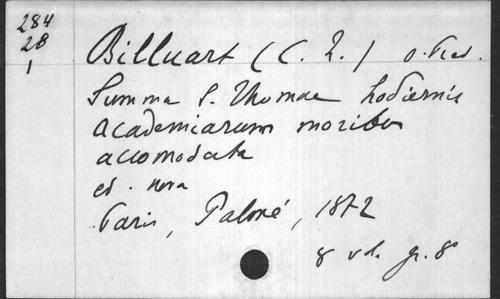 284
28
1
Billuart (C. R.) o. Pred.
Summa S. Thomae hodiernis
academiarum moribus
accomodata
ed. nova
Paris, Palmé, 1872
8 vol. gr. 8°